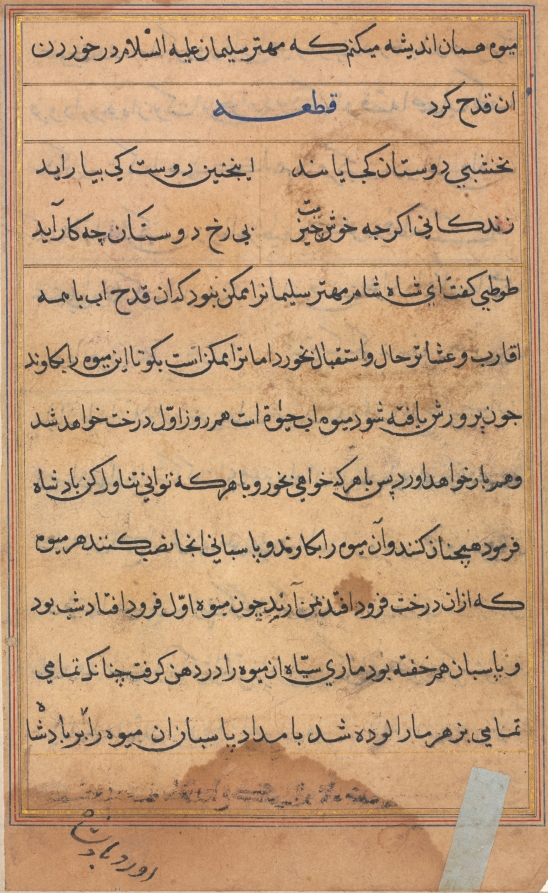 میوه همان اندیشه میکنم که مهتر سلیمان علیه السلام در خوردن
ان قدح کرد قطعه
نخشبی دوستان کجا یابند اینچنین دوست کی بیا راید
زندکانی اکرچه خوش چیزیست بی رخ دوستان چه کار آید
طوطی کفت ای شاه شاهم مهتر سلیمانرا ممکن نبود کدان قدح اب با همه
اقارب و عشائر حال و استقبال بخورد اما ترا ممکن است بکو تا این میوه را بکاوند
جون پرورش یافته شود میوه اب حیوة است هم روز اول درخت خواهد شد
و هم بار خواهد اورد پس با هر که خواهی بخور و با هر که توانی تناول کن باد شاه
فرمود همچنان کنند و آن میوه را بکاوند و پاسبانی انجا نصب کنند هر میوه
که ازان درخت فرود افتد بمن آرید چون میوه اول فرود افتاد شب بود
و پاسبان هم خفته بود ماری سیاه ان میوه را در دهن کرفت چنانکه تمامی
تمامی بزهر مار الوده شد بامداد پاسبان ان میوه را بر بادشاه
اورد بادشاه